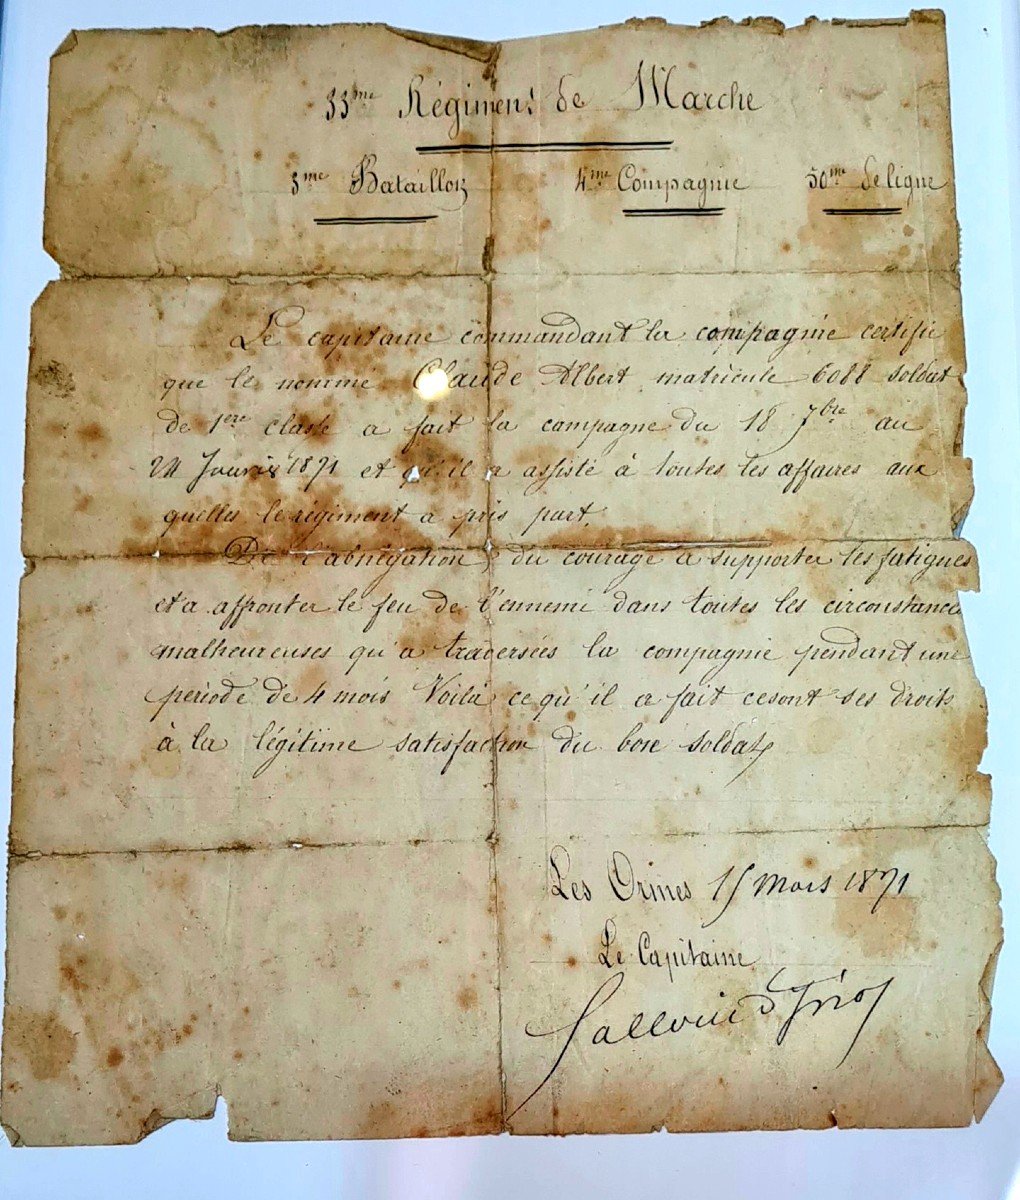 33me Régiment de Marche
3me Bataillon 4me Compagnie 50me de ligne
Le capitaine commandant la compagnie certifie
que le nommé Claude Albert matricule 6088 soldat
de 1ere classe a fait la campagne du 18 7bre au
24 Janvier 1871 et qu'il a assisté à toutes les affaires aux
quelles le régiment a pris part.
De l'abnégation, du courage a supporter les fatigues
et a affronter le feu de l'ennemi dans toutes les circonstances
malheureuses qu'a traversées la compagnie pendant une
période de 4 mois Voilà ce qu'il a fait ce sont ses droits
à la légitime satisfaction du bon soldat
Les Ormes 15 Mars 1871
Le Capitaine